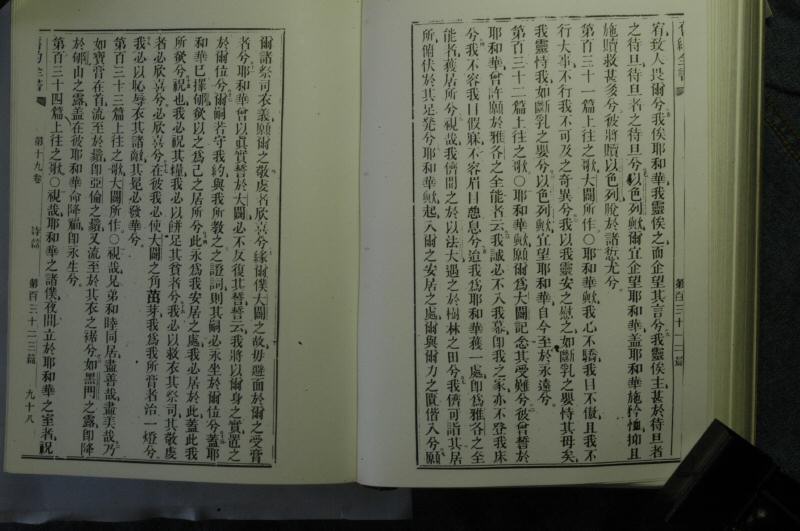 舊約全書
第百三十一二篇
宥致人畏爾兮我俟耶和華我靈俟之而企望其言兮我靈俟主甚於待旦者
之待旦待旦者之待旦兮以色列歟爾宜企望耶和華蓋耶和華施矜恤抑且
施贖救甚多兮彼將贖以色列脫於諸愆尤兮
第百三十一篇上往之歌大闢所作○耶和華歟我心不驕我目不傲且我不
行大事不行我不可及之奇異兮我以我靈安之慰之如斷乳之嬰恃其母矣
我靈恃我如斷乳之嬰兮以色列歟宜望耶和華自今至於永遠兮
第百三十二篇上往之歌○耶和華歟願爾爲大闢記念其受難兮彼曾誓於
耶和華曾許願於雅各之全能者云我誠必不入我幕卽我之家亦不登我床
兮我不容我目假寐不容眉目憩息兮迨我爲耶和華獲一處卽爲雅各之全
能者獲居所兮視哉我儕聞之於以法大遇之於樹林之田兮我儕可詣其居
所俯伏於其足凳兮耶和華歟起入爾之安居之處爾與爾力之匱偕入兮願
爾諸祭司衣義願爾之敬虔者欣喜兮緣爾僕大闢之故毋避面於爾之受膏
者兮耶和華曾以眞實誓於大闢必不反復其誓誓云我將以爾身之實置之
於爾位兮爾嗣若守我約與我所敎之之證詞則其嗣必永坐於爾位兮蓋耶
和華已擇郇欲以之爲己之居所兮此永爲我安居之處我必居於此蓋此我
所欲兮我必祝其糧我必以餅足其貧者兮我必以救衣其祭司其敬虔
者必欣喜兮在彼我必使大闢之角萌芽我爲我所膏者治一燈兮
我必以恥辱衣其諸敵其冕必發華兮
第百三十三篇上往之歌大闢所作○視哉兄弟和睦同居盡善哉盡美哉乃
如寶膏在首流至於鬚卽亞倫之鬚又流至於其衣之裾兮如黑門之露卽降
於郇山之露蓋在彼耶和華命降福卽永生兮
第百三十四篇上往之歌○視哉耶和華之諸僕夜間立於耶和華之室者祝
舊約全書
第十九卷
詩篇
第百三十二三篇
九十八